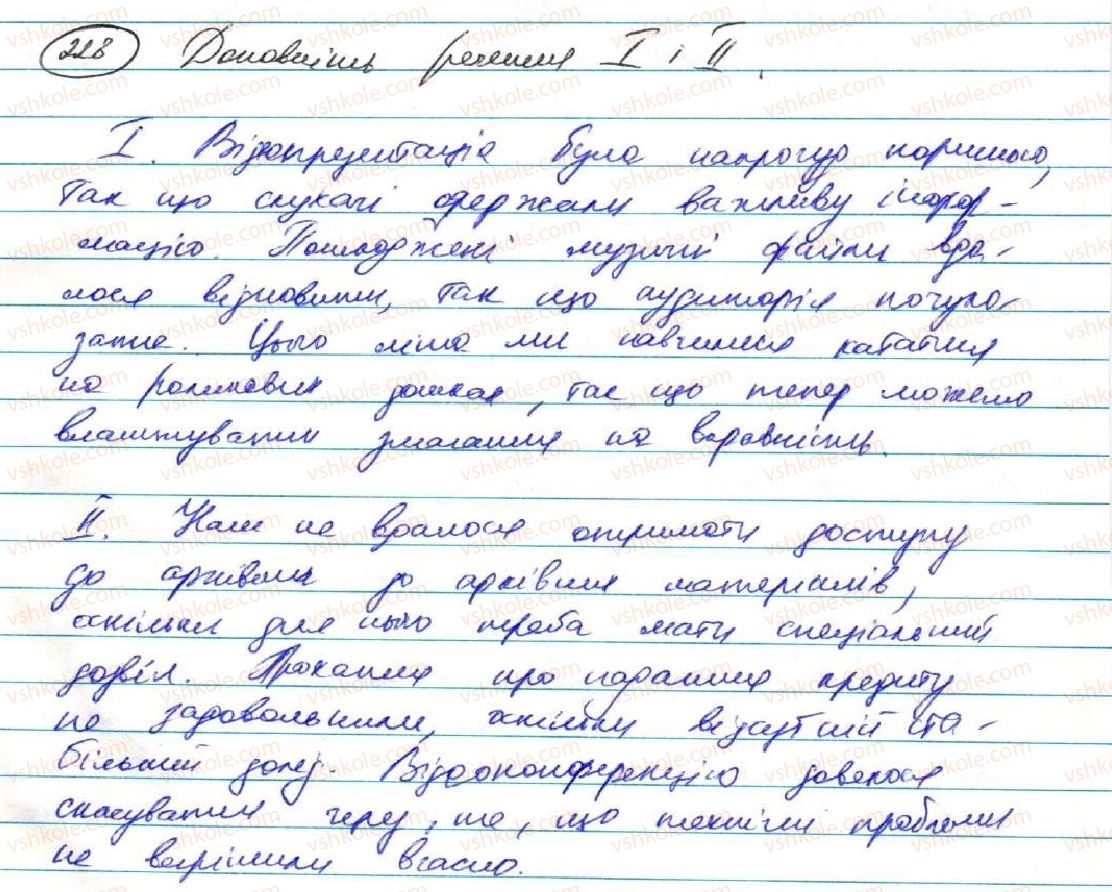 228 Доповніть речення I і II.
I. Відеопрезентація була напрочуд корисною,
так що слухачі одержали важливу інфор-
мацію. Пошкоджені музичні файли вда-
лося відновити, так що аудиторія почула
запис. Цього літа ми навчилися кататися
на роликових дошках, так що тепер можемо
влаштувати змагання на вправність.
II. Нам не вдалося отримати доступу
до архівних до архівних матеріалів,
оскільки для нього треба мати спеціальний
дозвіл. Прохання про надання кредиту
не задовольнили, оскільки відсутній ста-
більний дохід. Відеоконференцію довелося
скасувати через, те, що технічні проблеми
не вирішили вчасно.